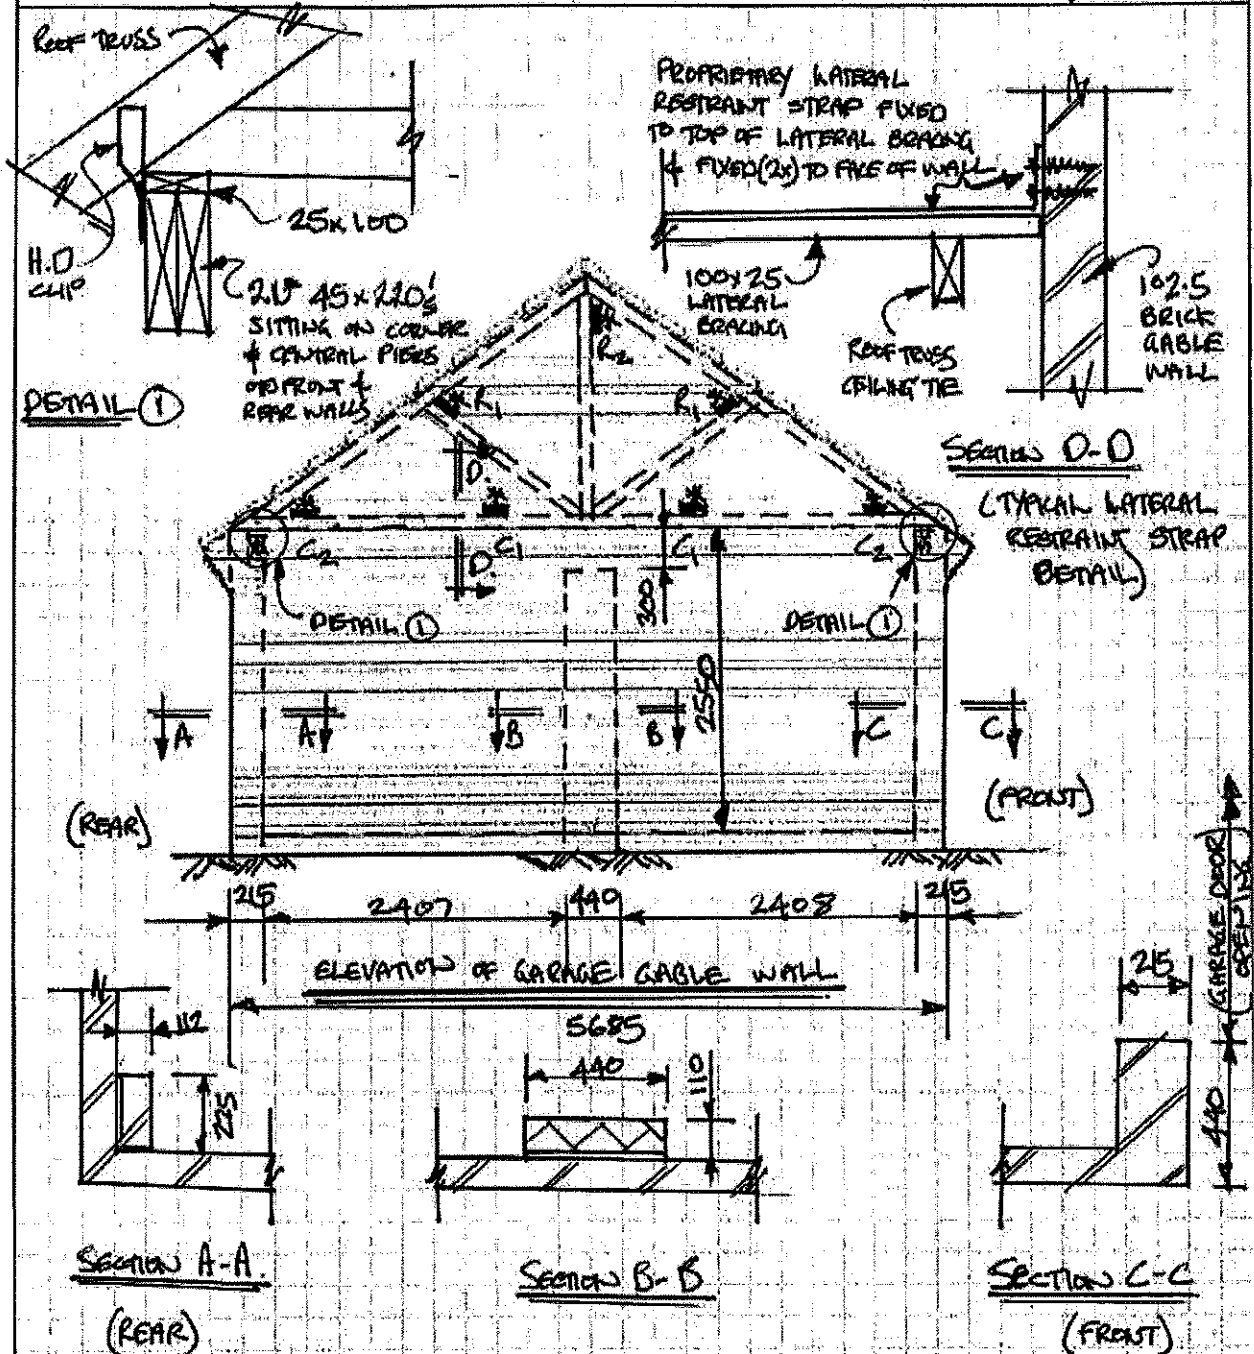 ROOF TRUSS
25x100
H.D
CLIP
2 No 45x220's
SITTING ON CORNER
& CENTRAL PIERS
ON FRONT &
REAR WALLS
DETAIL 1
PROPRIETARY LATERAL
RESTRAINT STRAP FIXED
TO TOP OF LATERAL BRACING
& FIXED (2x) TO FACE OF WALL
100x25
LATERAL
BRACING
ROOF TRUSS
CEILING TIE
102.5
BRICK
GABLE
WALL
SECTION D-D
(TYPICAL LATERAL
RESTRAINT STRAP
DETAIL)
R2
R1
R1
D
C2
C1
C1
C2
D
300
DETAIL 1
DETAIL 1
2550
A
A
B
B
C
C
(REAR)
(FRONT)
215
2407
440
2408
215
ELEVATION OF GARAGE GABLE WALL
5685
112
225
SECTION A-A
(REAR)
440
110
SECTION B-B
215
(GARAGE DOOR
OPENING)
440
SECTION C-C
(FRONT)